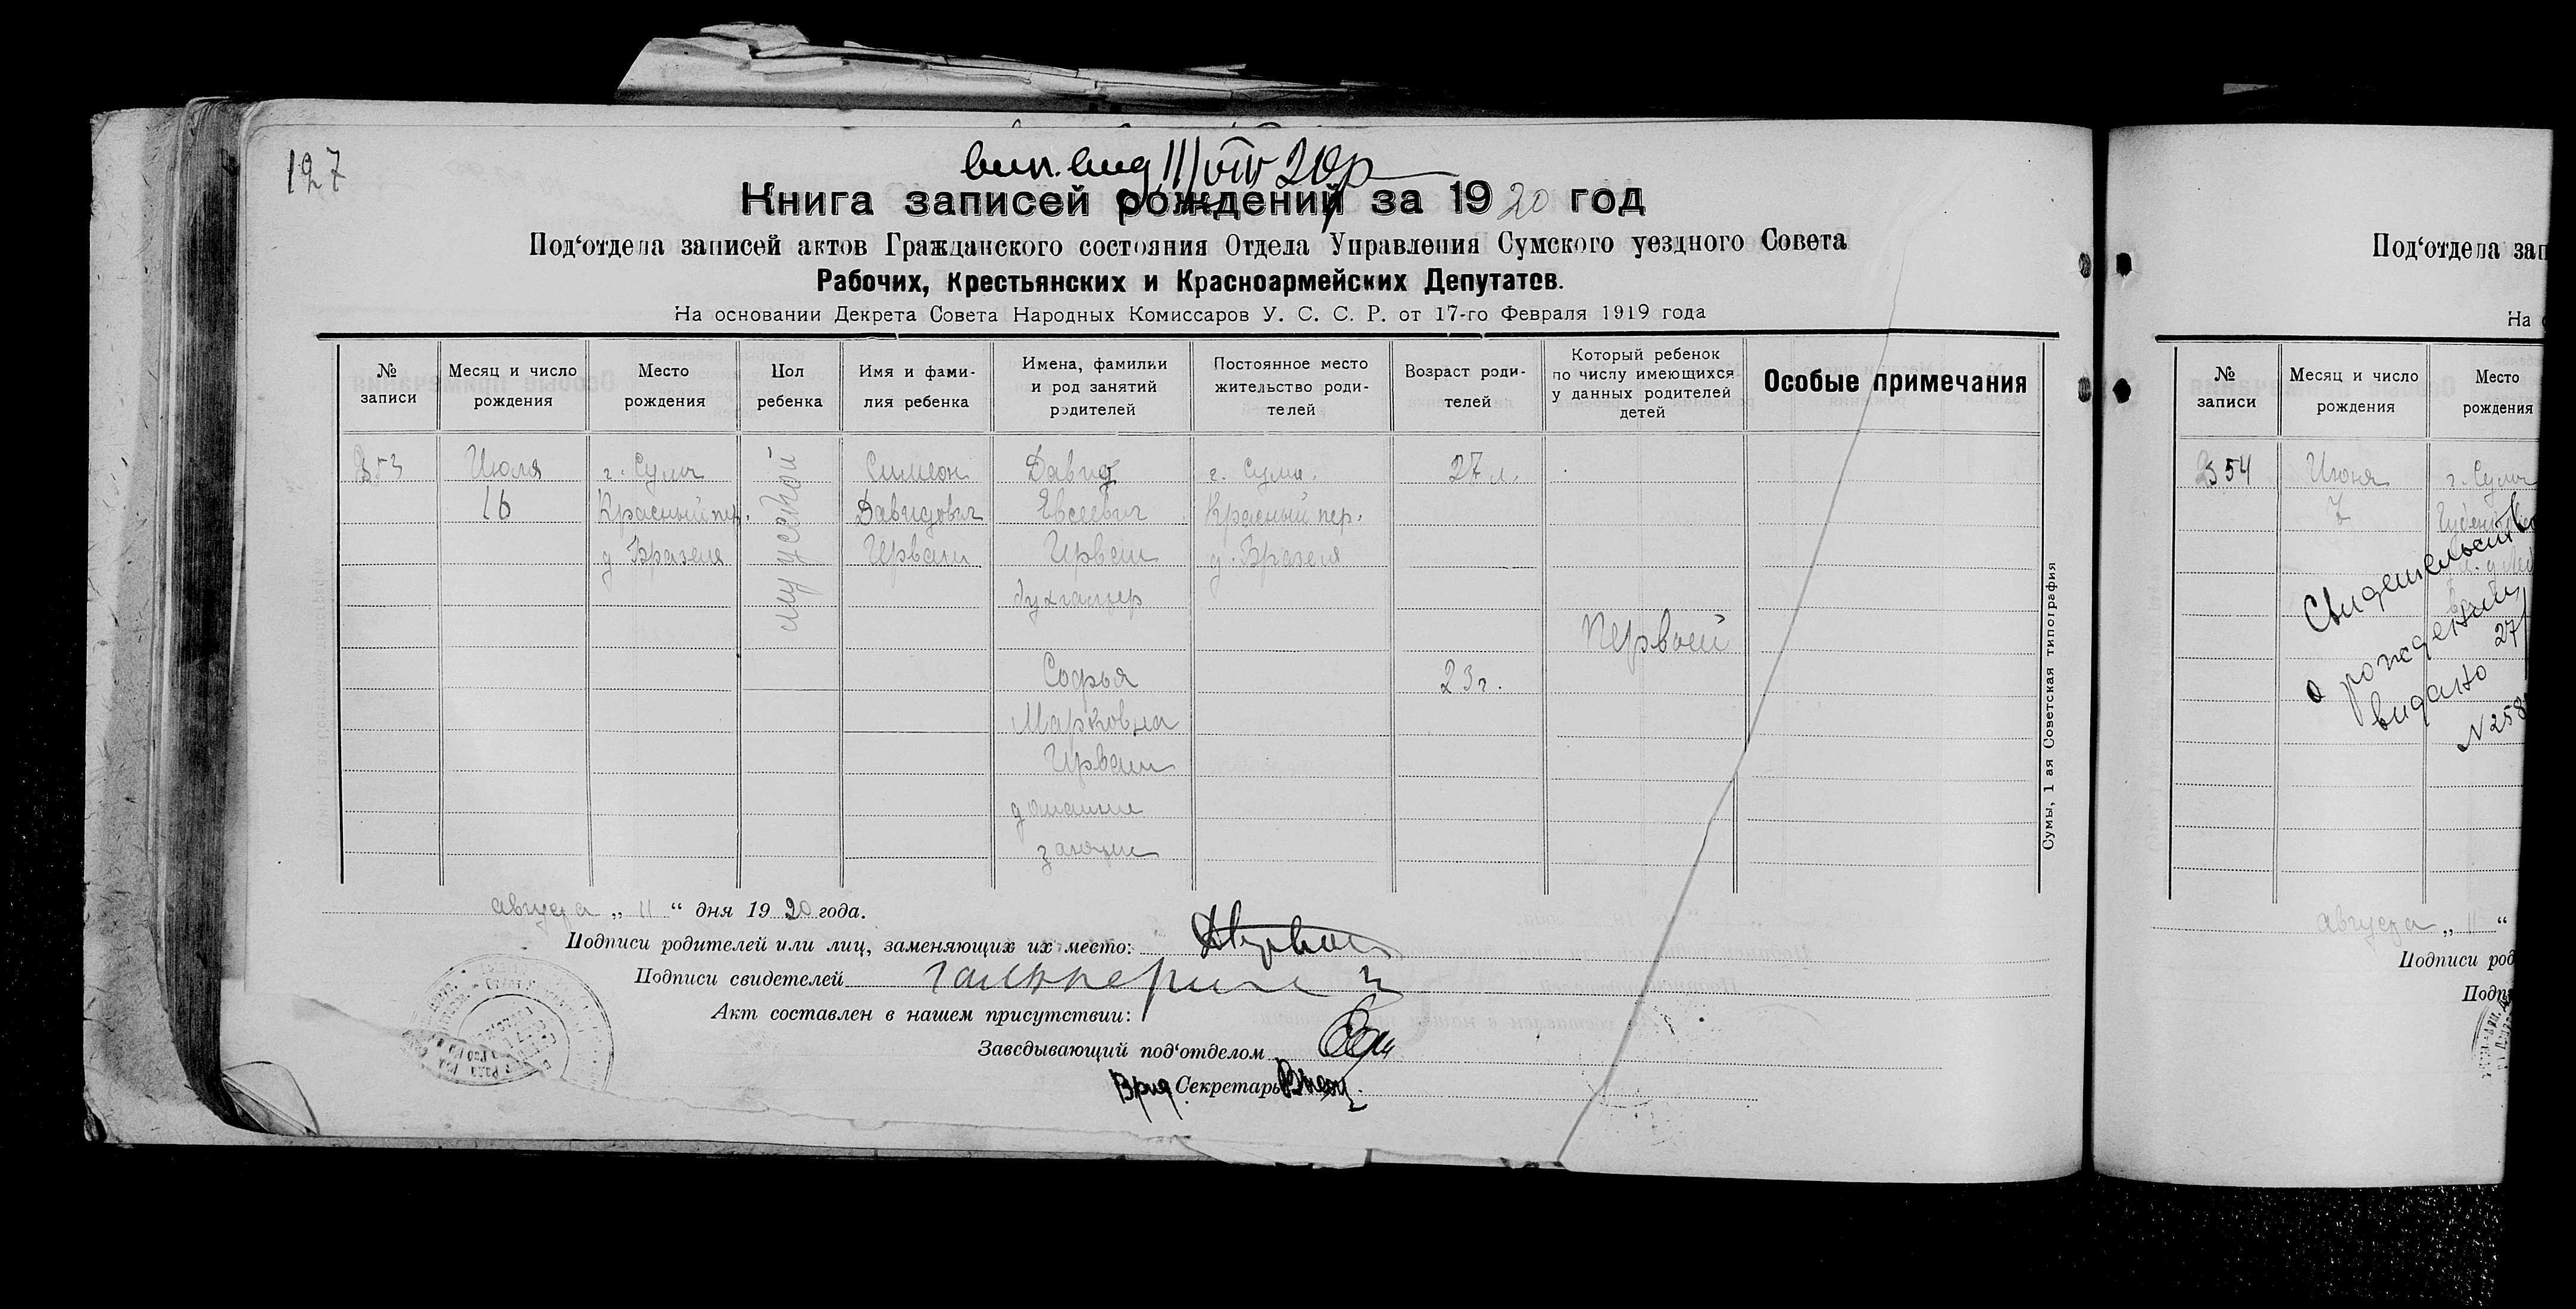 127
вип. вид 11/VIII 20р
Книга записей рождений за 1920 год
Под‘отдела записей актов Гражданского состояния Отдела Управления Сумского уездного Совета
Рабочих, Крестьянских и Красноармейских Депутатов.
На основании Декрета Совета Народных Комиссаров У. С. С. Р. от 17-го Февраля 1919 года
№ записи
Месяц и число рождения
Место рождения
Пол ребенка
Имя и фами-
лия ребенка
Имена, фамилии
и род занятий
родителей
Постоянное место
жительство роди-
телей
Возраст роди-
телей
Который ребенок
по числу имеющихся
у данных родителей
детей
Особые примечания
353
Июля
16
г. Сумы
Красный пер.
д Бразеля
мужской
Симеон
Давидович
Ирваш
Давид
Евсеевич
Ирваш
бухгалтер
Софья
Марковна
Ирваш
домашние
занятие
г. Сумы.
Красный пер.
д. Бразеля
27 л.
23 г.
Первый
Сумы, 1 ая Советская типография
августа „ 11 “ дня 1920 года.
Подписи родителей или лиц, заменяющих их место:
Подписи свидетелей
Акт составлен в нашем присутствии:
Заведывающий под‘отделом
Врид Секретарь
Под‘отдела зап
На
№ записи
Месяц и число рождения
Место рождения
354
Июня
7
г. Сумы
Свидетельство
о рождении
видано 27/
N 258
августа „ 11 “
Подписи род
Подп